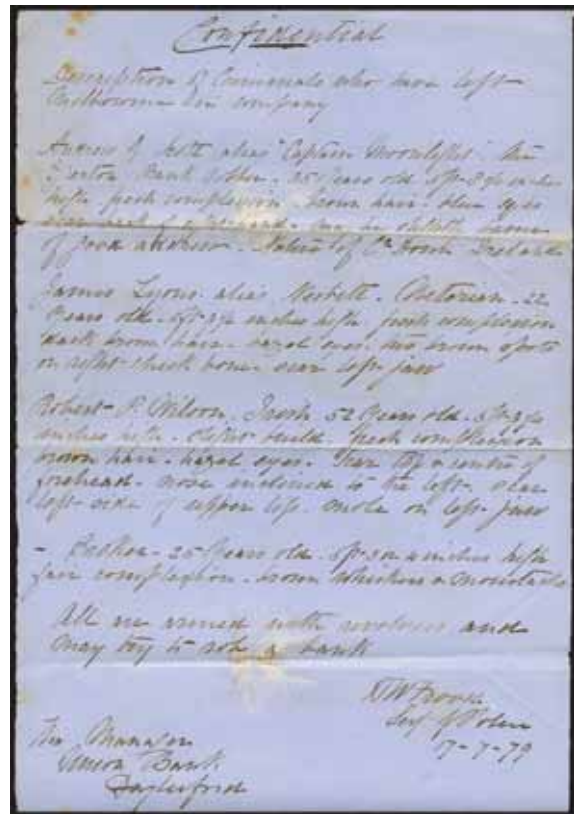 Confidential
Description of Criminals who have left
Melbourne in company
Andrew G Scott alias "Captain Moonlight" the
Bank robber. 35 Years old. 5ft 8 inches
high fresh complexion brown hair. blue eyes
of good address. Native of Ireland
James Lyons alias Nesbitt. Victorian. 22
Years old. 5ft inches high fresh complexion
dark brown hair. hazel eyes. two brown spots
on right cheek bone. scar left jaw
Robert P. Wilson. Irish 52 Years old. 5ft
inches high. slight build. fresh complexion
brown hair. hazel eyes. Scar centre of
forehead. nose inclined to the left. scar
left side of upper lip. mole on left jaw
- 25 Years old. 5ft inches high
fair complexion. brown whiskers & moustache
All are armed with revolvers and
may try to rob a bank
Sergt of Police
17-7-79
The Manager
Union Bank
Daylesford